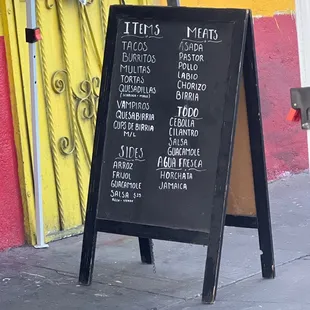 ITEMS
TACOS
BURRITOS
MULITAS
TORTAS
QUESADILLAS
VAMPIROS
QUESABIRRIA
CUPS DE BIRRIA
M/L
SIDES
ARROZ
FRIJOL
GUACAMOLE
SALSA $.25
MEATS
ASADA
PASTOR
POLLO
LABIO
CHORIZO
BIRRIA
TODO
CEBOLLA
CILANTRO
SALSA
GUACAMOLE
AGUA FRESCA
HORCHATA
JAMAICA